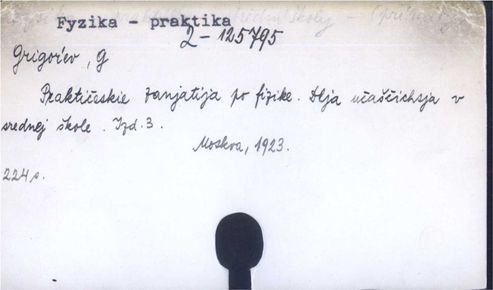 Fyzika - praktika
2-125795
Grigoŕev, G
Praktičeskie zanjatija po fizike. Dlja učaščichsja v
srednej škole. Izd. 3.
Moskva, 1923.
224 s.